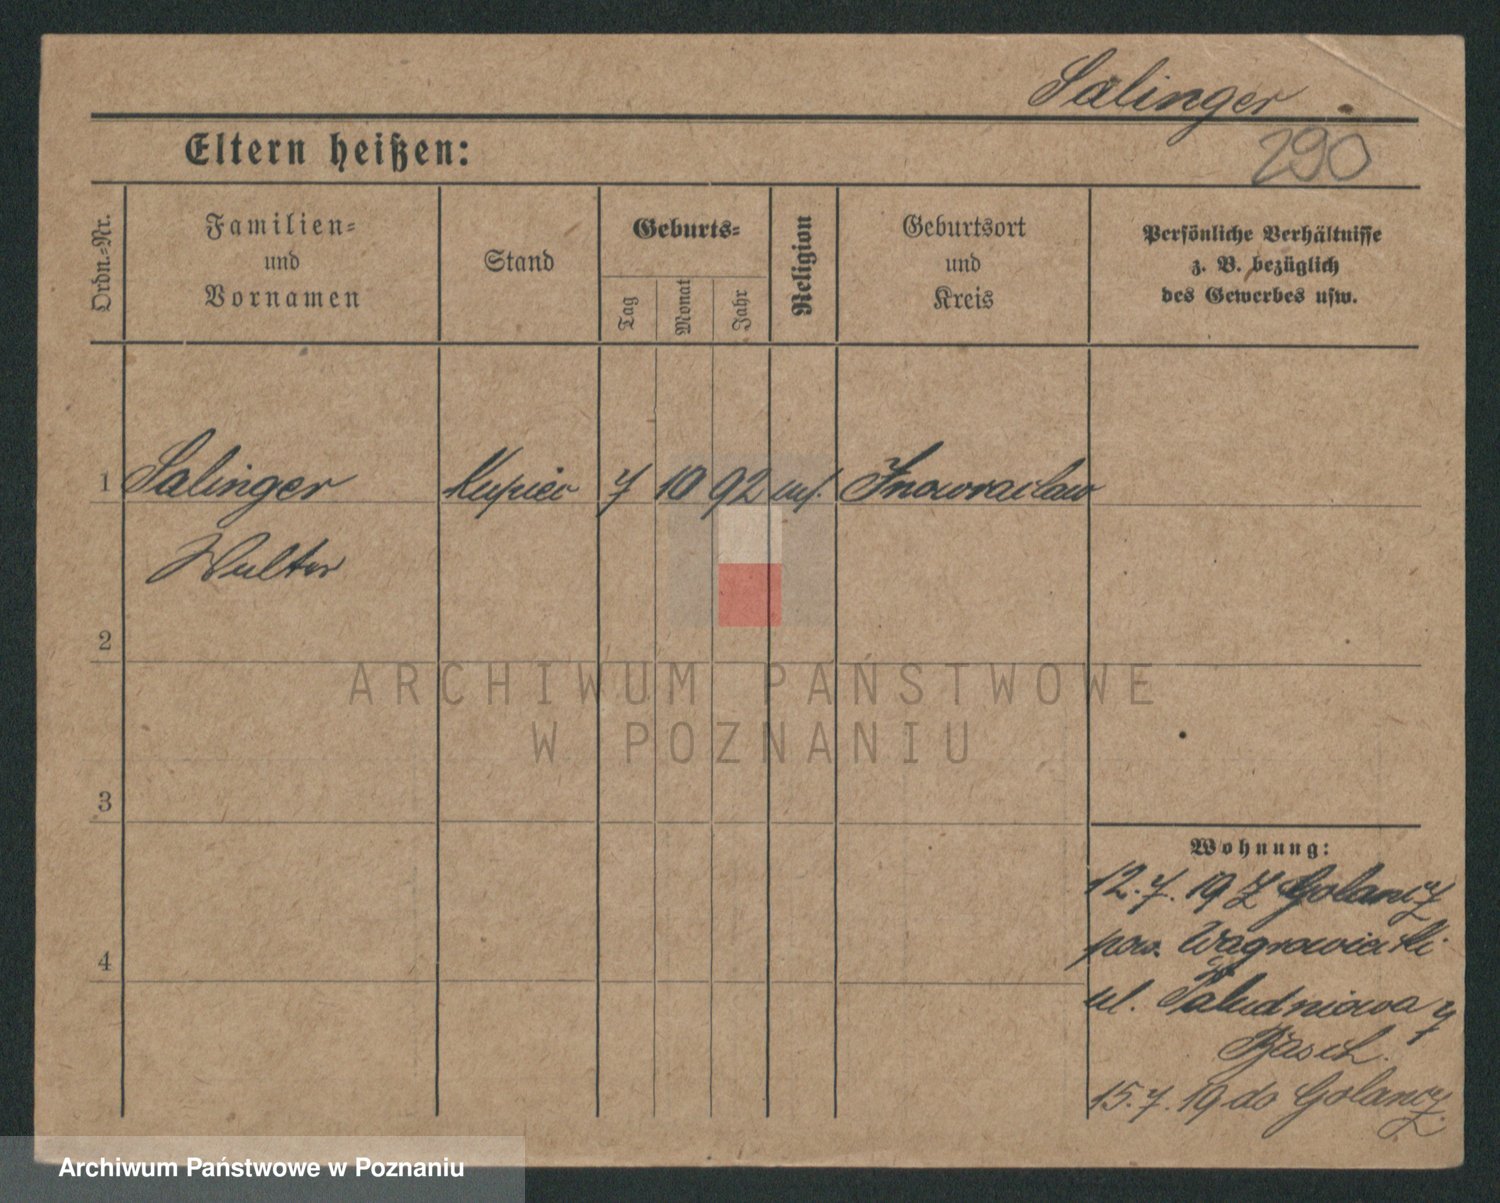 Salinger
290
Eltern heißen:
Ordn.-Nr.
Familien- und Vornamen
Stand
Geburts-
Tag
Monat
Jahr
Religion
Geburtsort und Kreis
Persönliche Verhältnisse
z. B. bezüglich
des Gewerbes usw.
1 Salinger Kupiec 7 10 92 Inowraclaw
Walter
2
3
4
Wohnung:
12.7.19 Z Golanczy
pow. Wagrowiecki
ul. Poludniowa 7
Basch.
15.7.19 do Golanczy
ARCHIWUM PAŃSTWOWE
W POZNANIU
Archiwum Państwowe w Poznaniu